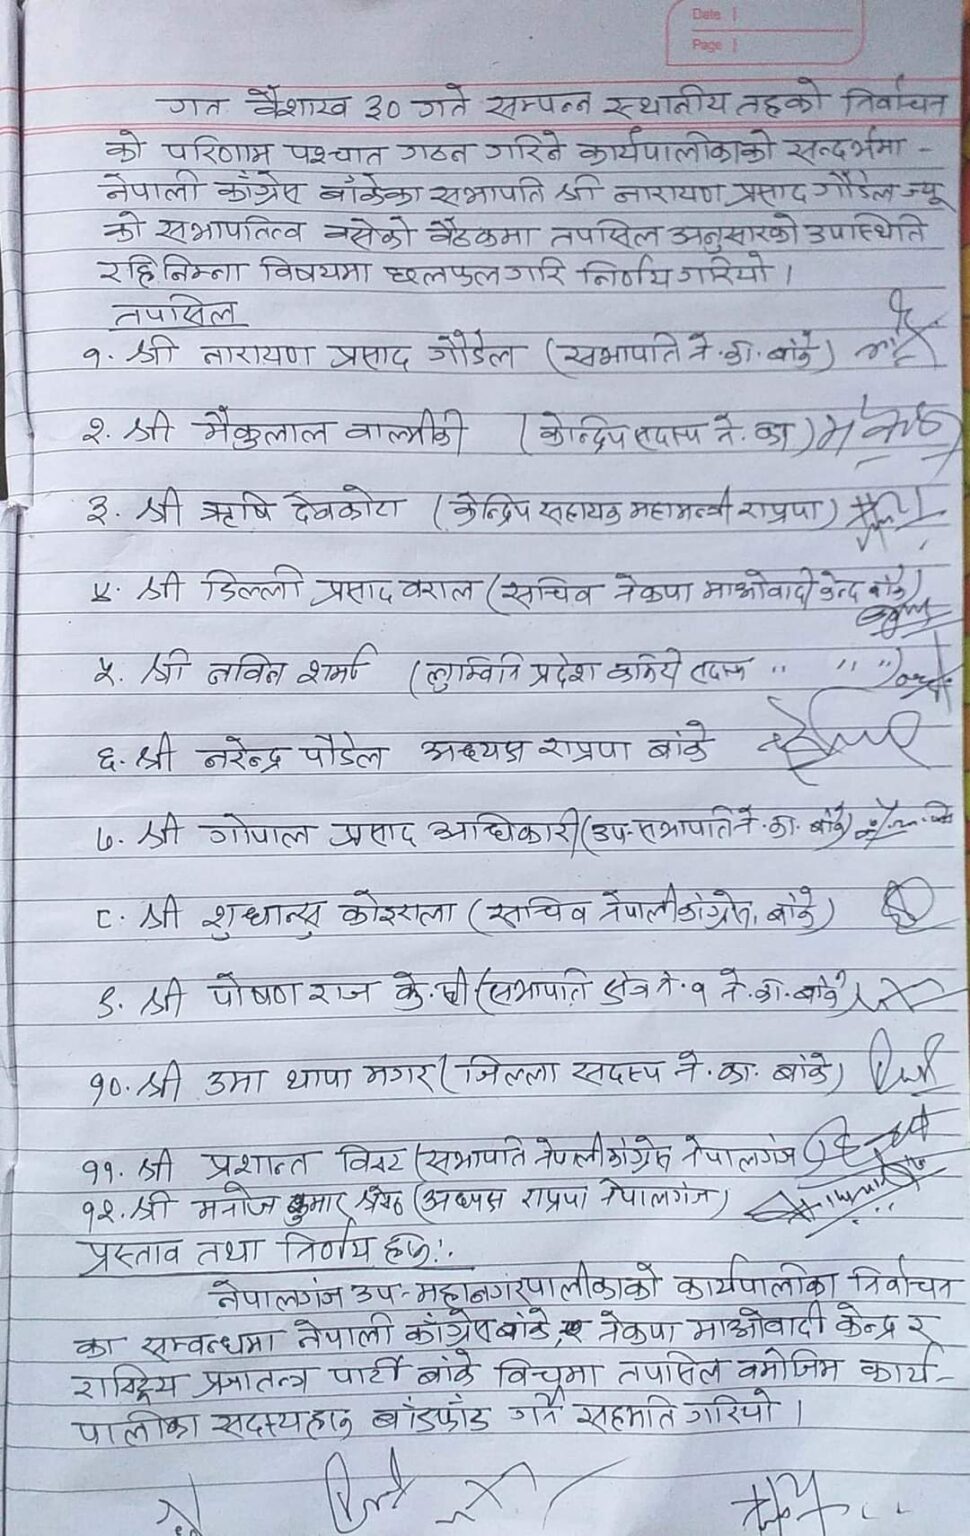 Date
Page
गत बैशाख ३० गते सम्पन्न स्थानीय तहको निर्वाचन
को परिणाम पश्चात गठन गरिने कार्यपालीकाको सन्दर्भमा -
नेपाली काँग्रेस बाँकेका सभापति श्री नारायण प्रसाद गौडेल ज्यू
को सभापतित्व बसेको बैठकमा तपसिल अनुसारको उपास्थिति
रहि निम्न विषयमा छलफल गरि निर्णय गरियो ।
तपासिल
१. श्री नारायण प्रसाद गौडेल (सभापति ने.का. बाँके)
२. श्री मैकुलाल वाल्मीकी (केन्द्रिय सदस्य ने. का)
३. श्री ऋषि देवकोटा (केन्द्रिय सहायक महामन्त्री राप्रपा)
४. श्री डिल्ली प्रसाद वराल (सचिव नेकपा माओवादी केन्द्र बाँके)
५. श्री नविन शर्मा (लुम्विनि प्रदेश कमिटी सदस्य " " ")
६. श्री नरेन्द्र पौडेल अध्यक्ष राप्रपा बांके
७. श्री गोपाल प्रसाद अधिकारी (उप-सभापति ने.का. बाँके)
८. श्री शुधान्सु कोइराला (सचिव नेपाली काँग्रेस, बाँके)
९. श्री पोषण राज के.सी (सभापति क्षेत्र नं. १ ने.का. बाँके)
१०. श्री उमा थापा मगर (जिल्ला सदस्य ने.का. बांके)
११. श्री प्रशान्त विस्ट (सभापति नेपाली काँग्रेस नेपालगंज
१२. श्री मनोज कुमार श्रेष्ठ (अध्यक्ष राप्रपा नेपालगंज)
प्रस्ताव तथा निर्णय हरु :
नेपालगंज उप-महानगरपालीकाको कार्यपालीका निर्वाचन
का सम्वन्धमा नेपाली काँग्रेस बाँके, नेकपा माओवादी केन्द्र र
राष्ट्रिय प्रजातन्त्र पार्टी बाँके विचमा तपासिल वमोजिम कार्य-
पालीका सदस्यहरु बांडफाँड गर्ने सहमति गरियो ।